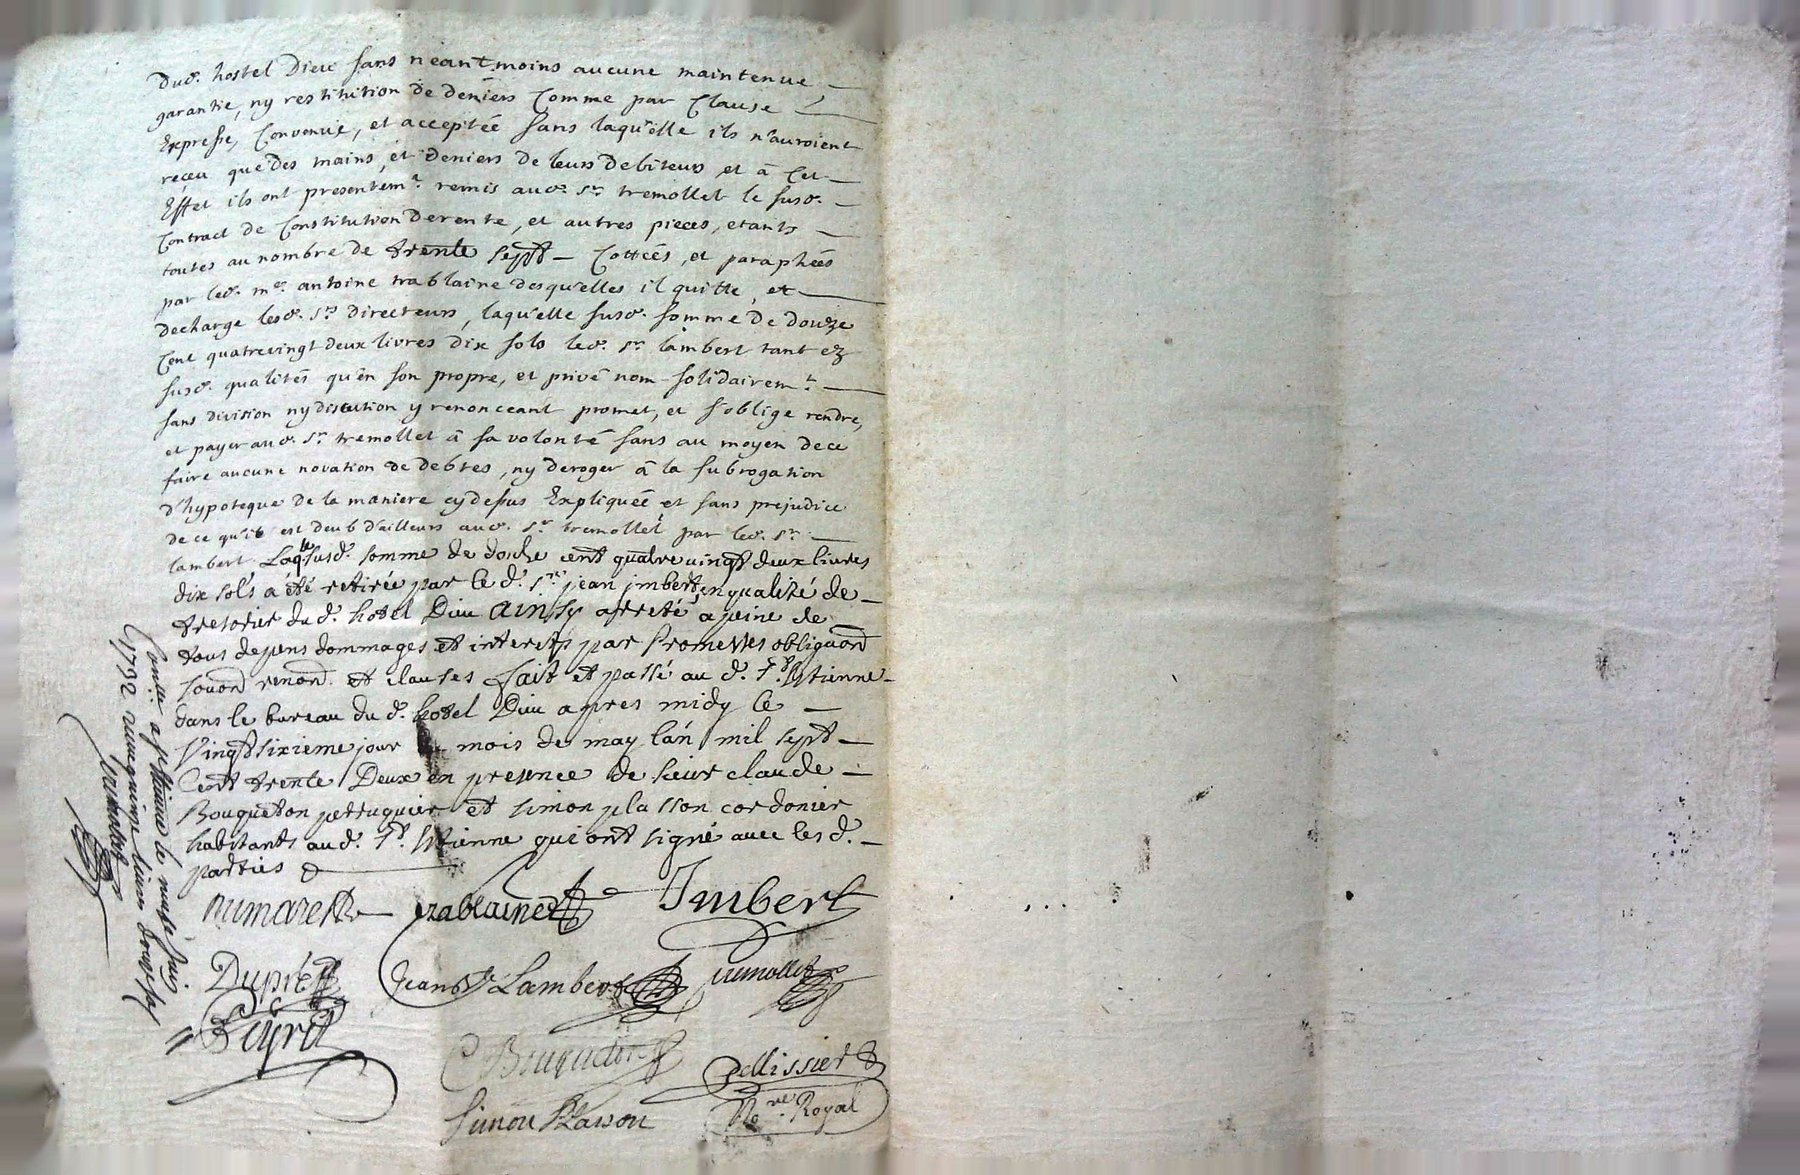 dud. hostel Dieu sans neantmoins aucune maintenue,
garantie, ny restitution de deniers Comme par Clause
Expresse, Convenue, et acceptée sans laquelle ils n'auroient
receu que des mains, et deniers de leurs debiteurs, et à Cet
Effet ils ont presentemt. remis aud. sr. tremollet le susd.
Contract de Constitution de rente, et autres pieces, etants
toutes au nombre de trente sept Cottées, et paraphées
par led. me. antoine trablaine desquelles il quitte, et
decharge lesd. srs. directeurs, laquelle susd. somme de douze
Cent quatrevingt deux livres dix sols led. sr. lambert tant ez
susd. qualités qu'en son propre, et privé nom solidairemt.
sans division ny discution y renonceant promet, et s'oblige rendre,
et payer aud. sr. tremollet à sa volonté sans au moyen de ce
faire aucune novation de debtes, ny deroger à la subrogation
d'hypoteque de la maniere cy dessus Expliquée et sans prejudice
de ce qu'il est deub d'ailleurs aud. sr. tremollet par led. sr.
lambert Laqlle susd. somme de douze cent quatre vingt deux livres
dix sols a été retirée par le d. sr. jean jmbert, en qualité de
tresorier du d. hotel Dieu Ainsy arreté a peine de
tous depens dommages et interests par Promesses obligaon
soumon renon. et clauses fait et passé au d. st. Etienne
dans le bureau du d. hotel Dieu apres midy le
Vingt sixieme jour mois de may l'an mil sept
Cent trente Deux en presence de sieur claude
Bouqueton perruquier et simon plasson cordonier
habitants aud. st. Etienne qui ont signé avec lesd.
parties
trablaine Imbert
Dupré Jean Lambert tremollet
Peyret
Pellissier
Simon Plasson No.re Royal
Con.lle a st etienne le
1732 receu quinze livres